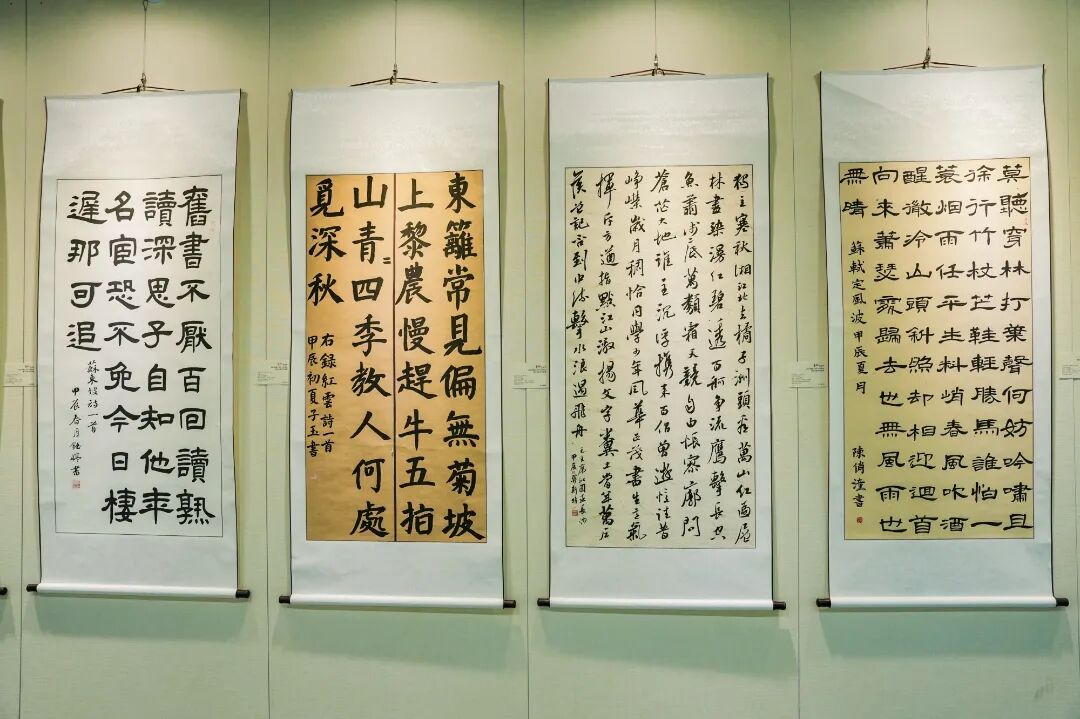 舊書不厭百回讀熟
讀深思子自知他年
名宦恐不免今日棲
遲那可追
蘇東坡詩一首
甲辰春月
東籬常見偏無菊坡
上黎農慢趕牛五指
山青々四季教人何處
覓深秋
右錄紅雲詩一首
甲辰初夏子玉書
獨立寒秋湘江北去橘子洲頭看萬山紅遍層
林盡染漫江碧透百舸争流鷹擊長空
魚翔淺底萬類霜天競自由悵寥廓問
蒼茫大地誰主沉浮攜來百侣曾遊憶往昔
崢嶸歲月稠恰同學少年風華正茂書生意氣
揮斥方遒指點江山激揚文字糞土當年萬户
侯曾記否到中流擊水浪遏飛舟
毛主席沁園春長沙
甲辰
莫聽穿林打葉聲何妨吟嘯且
徐行竹杖芒鞋輕勝馬誰怕一
蓑烟雨任平生料峭春風吹酒
醒微冷山頭斜照却相迎迴首
向來蕭瑟處歸去也無風雨也
無晴
蘇軾定風波 甲辰夏月
陳俏潼書